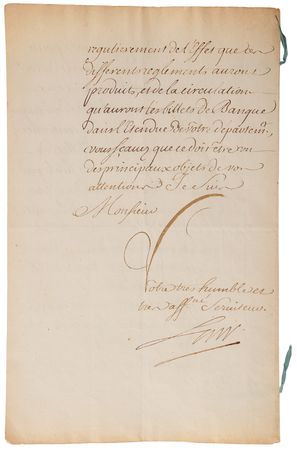 regulierement de l'Effet que ces
differents reglements auront
produits, et de la circulation
qu'auront les billets de Banque
dans l'Etendue de votre departem.,
vous scavez que ce doit être un
des principaux objets de vos
attentions. Je Suis
Monsieur
Votre tres humble et
tres aff.né Serviteur
Law